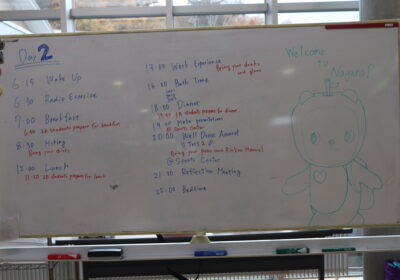 Day 2
6:15 Wake Up
6:30 Radio Exercise
7:00 Breakfast
6:50 2A students prepare for breakfast
8:30 Hiking
Bring your drinks
12:00 Lunch
11:50 2B students prepare for lunch
13:00 Work Experience
Bring your drinks
and gloves
16:00 Bath Time
18:00 Dinner
1A students prepare for dinner
19:00 photo presentations
@ Sports Center
20:00 Well Done Award
Bring your pens and Rinkan Manual
@Sports Center
21:30 Reflection Meeting
Bedtime
Welcome
to
Nagano!